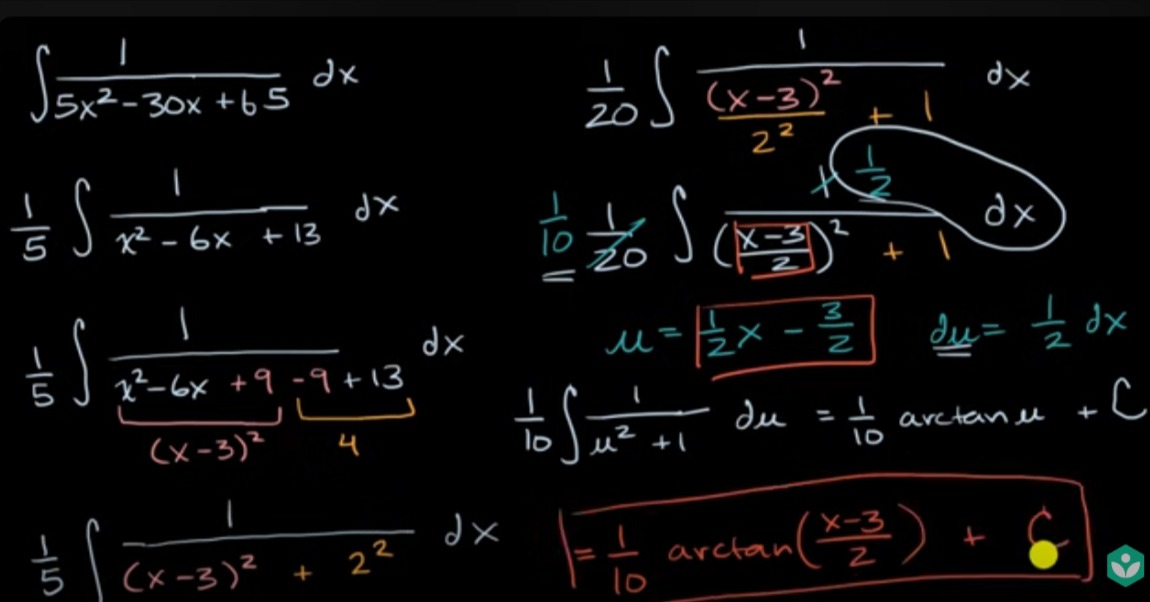 ∫ 1/(5x² - 30x + 65) dx
1/5 ∫ 1/(x² - 6x + 13) dx
1/5 ∫ 1/(x² - 6x + 9 - 9 + 13) dx
(x - 3)² 4
1/5 ∫ 1/((x - 3)² + 2²) dx
1/20 ∫ 1/((x - 3)²/2² + 1) dx
1/10 1/20 ∫ 1 1/2 /(((x - 3)/2)² + 1) dx
u = 1/2 x - 3/2 du = 1/2 dx
1/10 ∫ 1/(u² + 1) du = 1/10 arctan u + C
= 1/10 arctan((x - 3)/2) + C